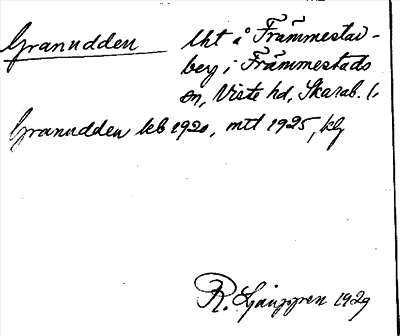 Granudden lht å Främmestad-
berg i Främmestads
sn, Viste hd, Skarab. l,
Granudden kb 1920, mtl 1925, kg
R. Ljunggren 1929